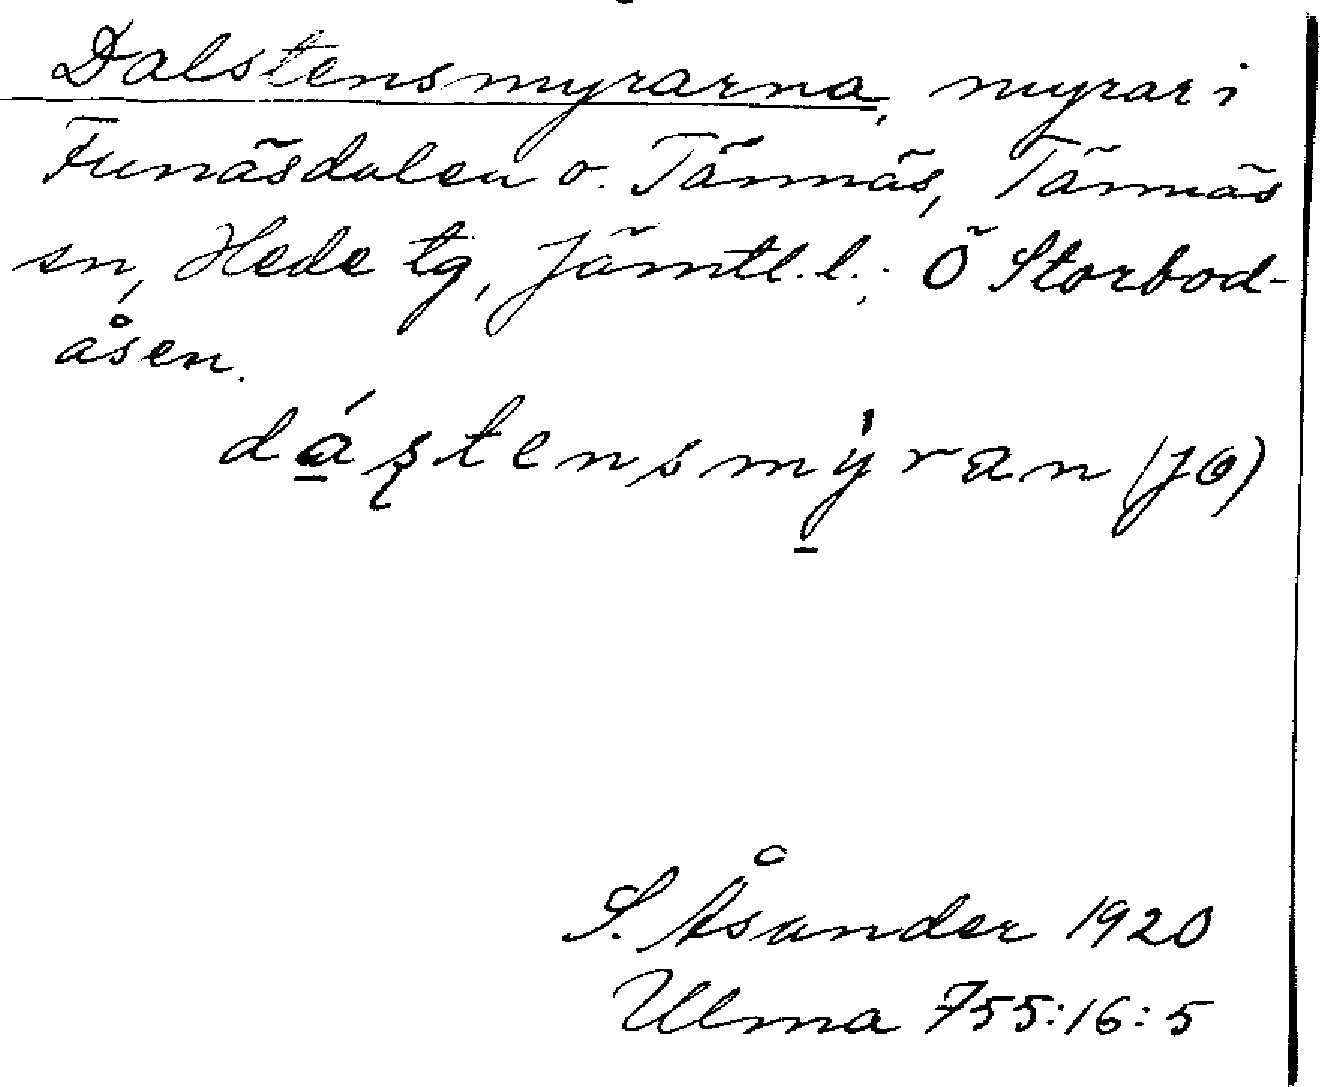 Dalstensmyrarna, myrar i
Funäsdalen o. Tännäs, Tännäs
sn, Hede tg, Jämtl. l.; Ö Storbod-
åsen.
dá̱ʂtensmý̱ran (JÖ)
S. Åsander 1920
Ulma 755:16:5